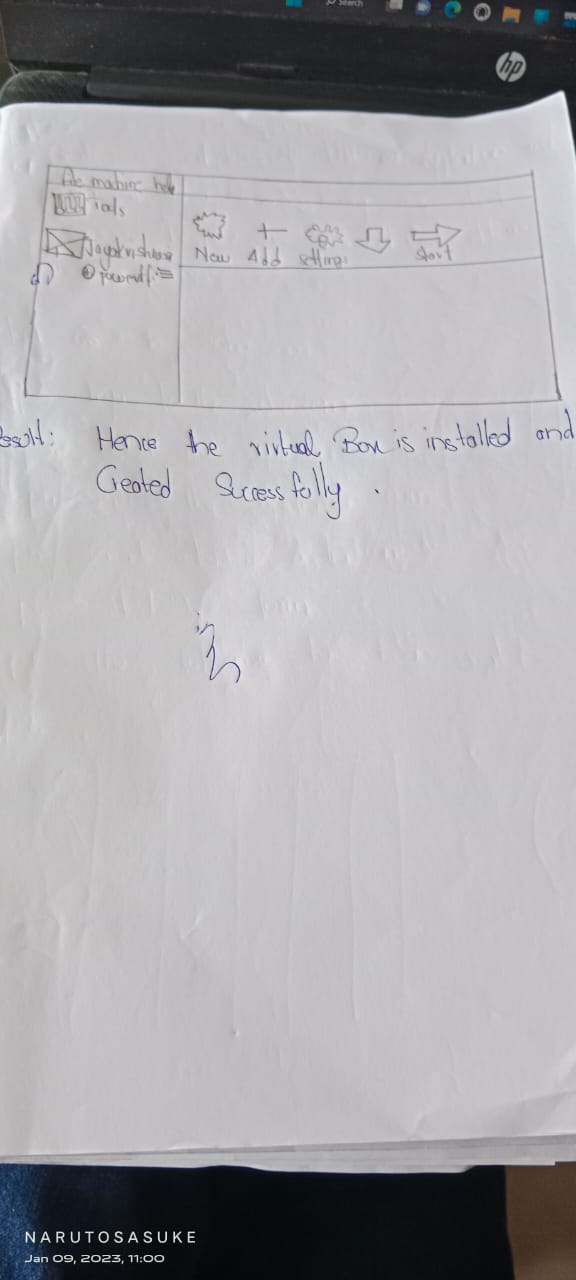 Search
hp
File machine help
Tools
Jayakrishna
New Add settings Start
Result: Hence the virtual Box is installed and
Created Successfully.
NARUTOSASUKE
Jan 09, 2023, 11:00